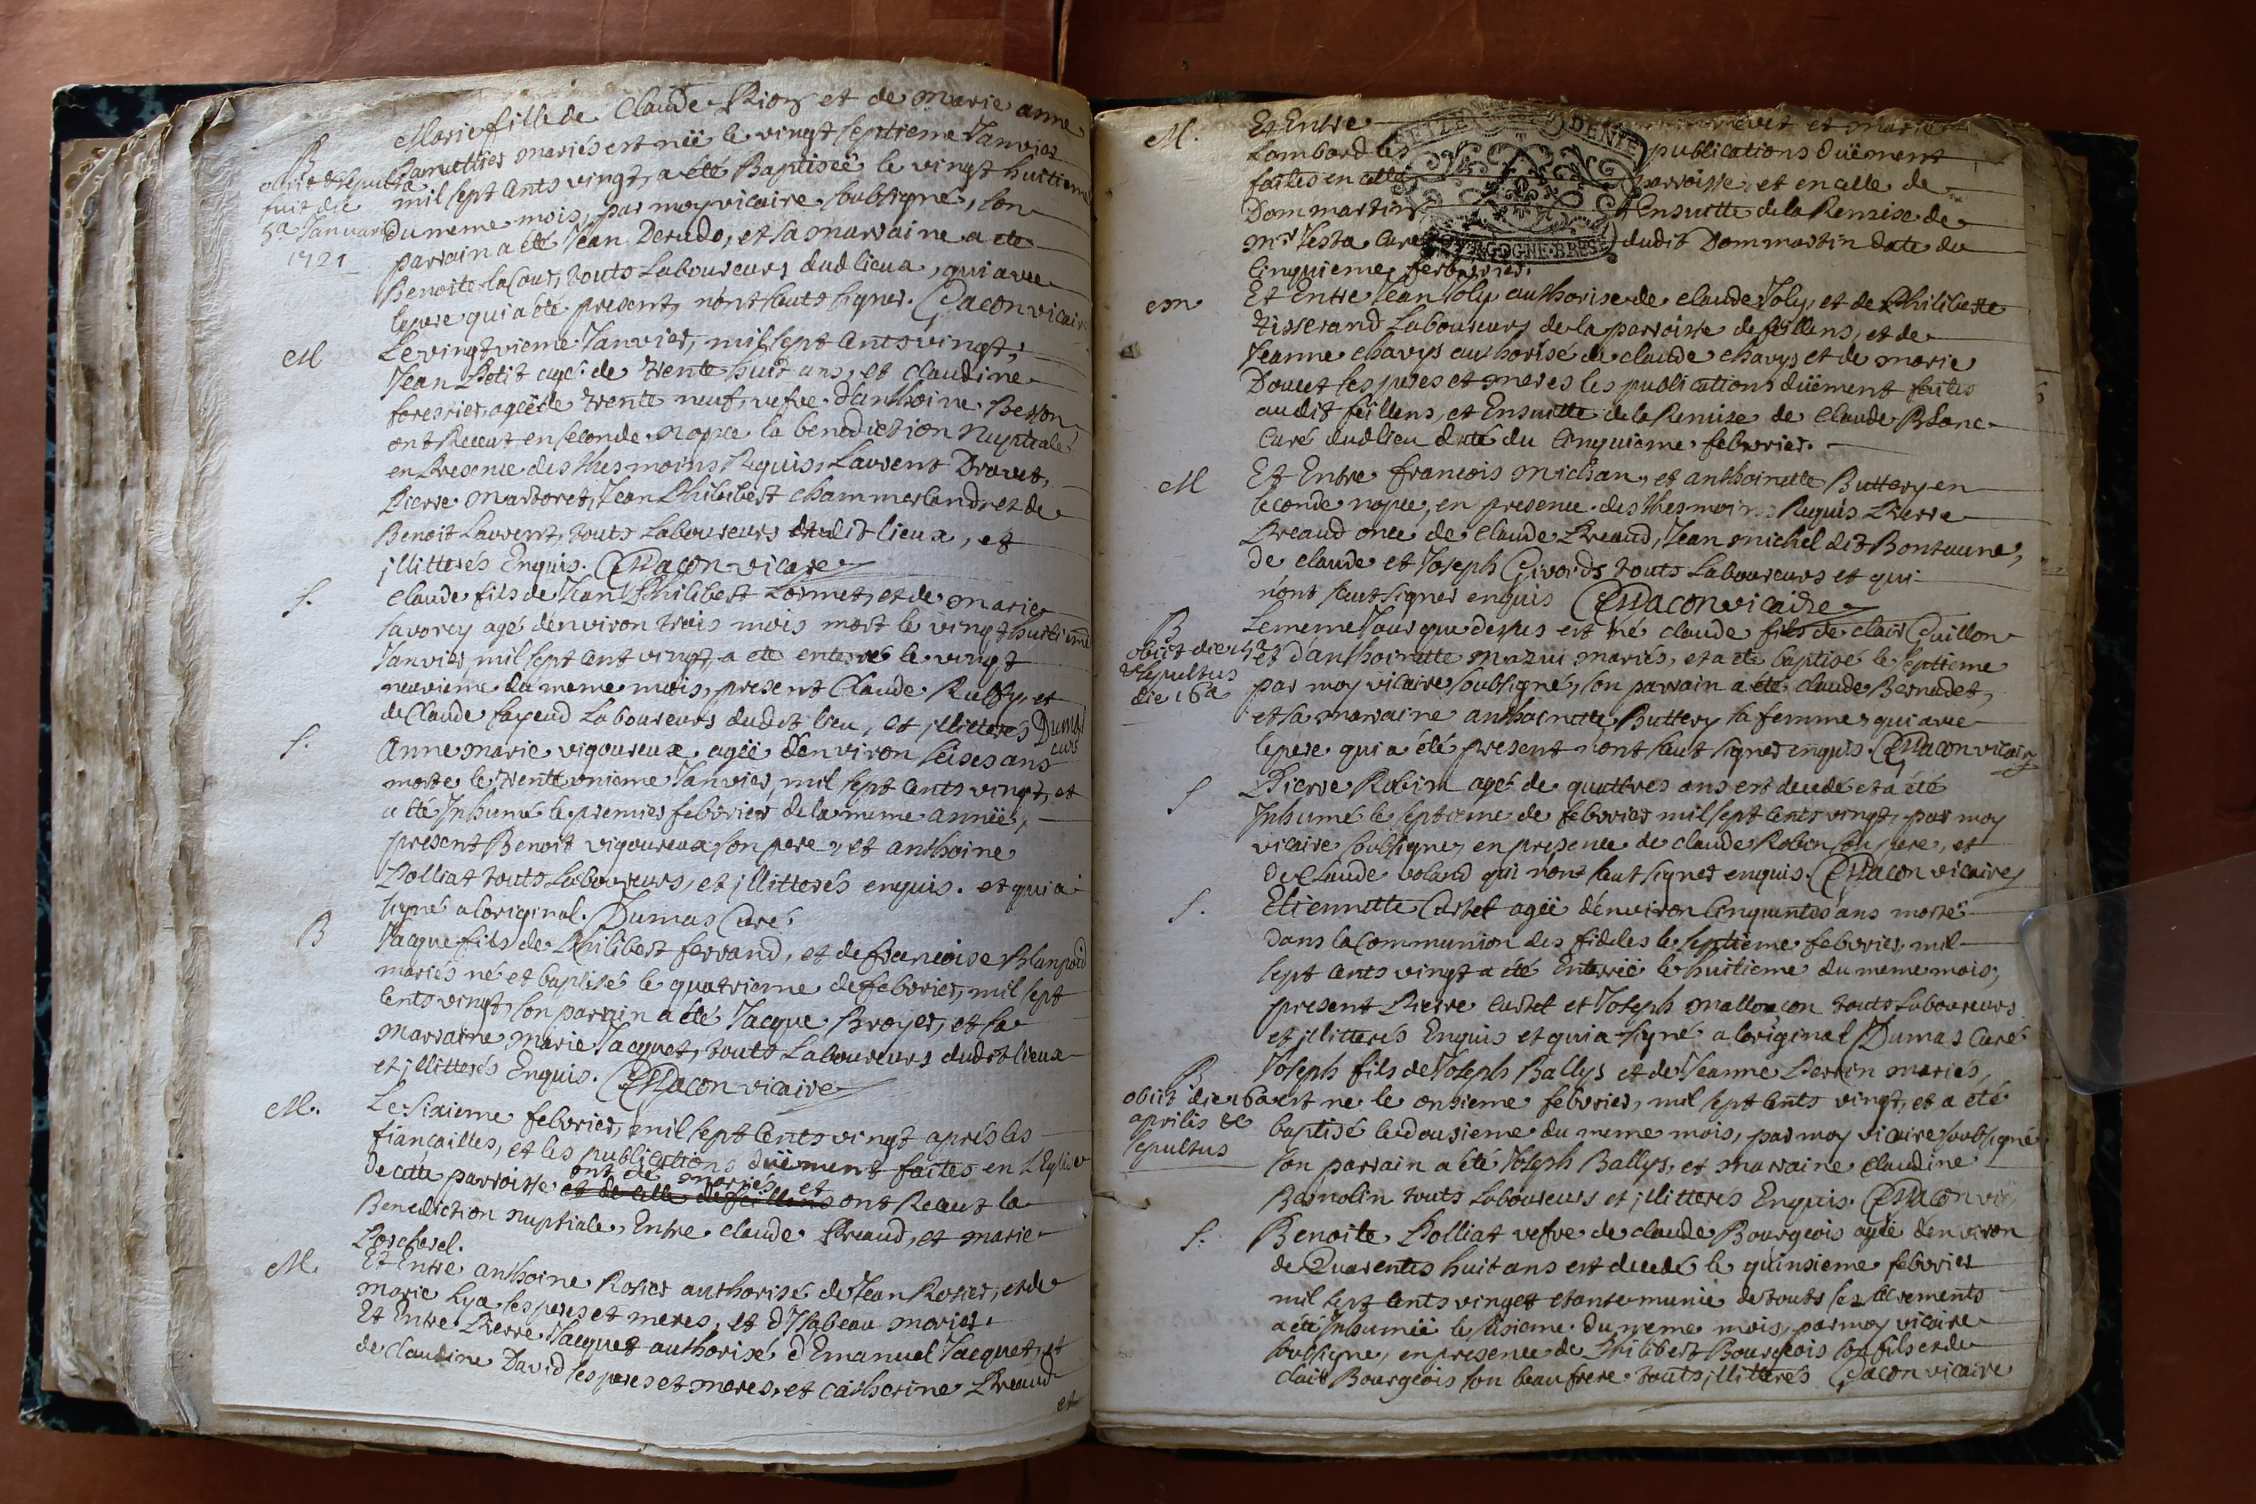 B
obiit et sepulta
fuit die
5a Januarii
1721
Marie fille de Claude Rion et de Marie anne
mariés est néë le vingt septieme Janvier
mil sept Cents vingt, a eté Baptiseë le vingt huitieme
du meme mois, par moy vicaire soubsigné, son
parrain a eté Jean Derudo, et sa marraine a ete
Benoite la Cour, touts Laboureurs dud lieux, qui avec
le pere qui a eté present, n'ont sceuts signer. Chacon vicaire
M
Le vingt Janvier, mil sept Cents vingt,
Jean Petit agé de trente huit ans, et Claudine
forestier, ageë de trente neuf, vefve d'anthoine Besson
ont Receut en seconde nopce la benediction Nuptiale
en Presence des thesmoins Requis, Laurent Dravet,
Pierre Martoret, Jean Philibert Chammerland, et de
Benoit Laurent, touts Laboureurs dudit lieux, et
jllitterés Enquis. Chacon vicaire
S.
Claude fils de Jean Philibert Lornet, et de Marie
Savorey agé d'environ trois mois mort le vingt huitieme
Janvier, mil sept Cent vingt, a eté enterré le vingt
neuvieme du meme mois, present Claude Ruffy, et
de Claude fayend Laboureurs dudit lieu, et jllitterés Dumas
curé
S.
Anne Marie vigoureux ageë d'environ seises ans
morte le trente unieme Janvier, mil sept Cents vingt, et
a eté Inhumé le premier febvrier de la meme anneë,
present Benoit vigoureux son pere, et anthoine
Polliat touts Laboureurs, et jllitterés enquis. et qui a
signé a l'original. Dumas Curé.
B
Jacque fils de Philibert ferrand, et de francoise Blanpoid
mariés né et baptisé le quatrieme de febvrier, mil sept
Cents vingt, son parrain a eté Jacque Broyer, et sa
marraine Marie Jacquet, touts Laboureurs dudit lieux
et jllitterés Enquis. Chacon vicaire
M.
Le Sixieme febvrier, mil sept Cents vingt aprés les
fiançailles, et les publications duëment faites en L'Eglise
ont eté mariés et
de cette parroisse et de celle de feillens ont Receut la
Benediction Nuptiale, Entre Claude Preaud, et Marie
Porcherel.
M.
Et Entre anthoine Rosier authorisé de Jean Rosier, et de
Marie Lya les peres et meres, et d'Isabeau Morier.
Et Entre Pierre Jacquet authorisé d'Emanuel Jacquet, et
de Claudine David ses peres et meres, et Catherine Preaud
et
M.
Et Entre et Marie
Lombard les publications duëment
faites en cette parroisse, et en celle de
Dommartin Ensuitte de la Remise de
Mr Testa Curé dudit Dommartin daté du
Cinquieme febvrier.
BOURGOGNE BRESSE
M
Et Entre Jean Joly authorisé de Claude Joly, et de Philiberte
tisserand Laboureurs de la parroisse de feillens, et de
Jeanne Chavys authorisé de Claude Chavys et de Marie
Doucet ses peres et meres les publications duëment faites
audit feillens, et Ensuitte de la Remise de Claude Blanc
Curé dudlieu daté du Cinquieme febvrier.
M
Et Entre francois Michan, et anthoinette Buttery en
seconde nopce, en presence des thesmoins Requis Pierre
Preaud once de Claude Preaud, Jean Michel dit Bontaune,
de Claude et Joseph Givords touts Laboureurs et qui
n'ont sceut signer enquis Chacon vicaire
B
obiit die 15a
et sepultus
die 16a
Le meme Jour que dessus est né Claude fils de Clair Guillon
et d'anthoinette Mazui mariés, et a eté baptisé le septieme
par moy vicaire soubsigné, son parrain a eté Claude Bernadet,
et sa marraine anthoinette Buttery sa femme, qui avec
le pere qui a eté present n'ont sceut signer enquis. Chacon vicaire
S
Pierre Robin agé de quattres ans est decedé et a eté
Inhumé le septieme de febvrier mil sept Cents vingt, par moy
vicaire soubsigné, en presence de Claude Robin son pere, et
de Claude Voland qui n'ont sceut signer enquis. Chacon vicaire
S.
Etiennette Cartet ageë d'environ Cinquantes ans morte
dans la Communion des fideles le septieme febvrier mil
sept Cents vingt a eté Enterreë le huitieme du meme mois,
present Pierre Cartet et Joseph Mallonçon touts Laboureurs
et jllitterés Enquis et qui a signé a l'original Dumas Curé
B
obiit die 16a
aprilis et
sepultus
Joseph fils de Joseph Ballys et de Jeanne Perrin mariés,
est né le onsieme febvrier, mil sept Cents vingt, et a eté
baptisé le dousieme du meme mois, par moy vicaire soubsigné
son parrain a eté Joseph Ballys, et marraine Claudine
Bagnolin touts Laboureurs et jllitterés Enquis. Chacon vic
S.
Benoite Polliat vefve de Claude Bourgeois ageë d'environ
de Quarentes huit ans est decedé le quinsieme febvrier
mil sept Cents vinget etante munie de touts ses sacrements
a eté Inhumeë le sisieme du meme mois, par moy vicaire
soubsigné, en presence de Philibert Bourgeois son fils et de
Clair Bourgeois son beau frere touts jllitterés Chacon vicaire